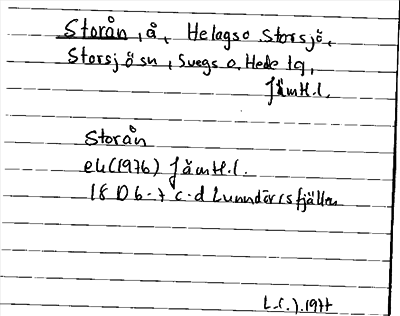 Storån, å, Helagso Storsjö,
Storsjö sn, Svegs o. Hede tg,
Jämtl.l.
Storån
ek (1976) Jämtl.l.
18 D b-7 c-d Lunndörrsfjällen
1977